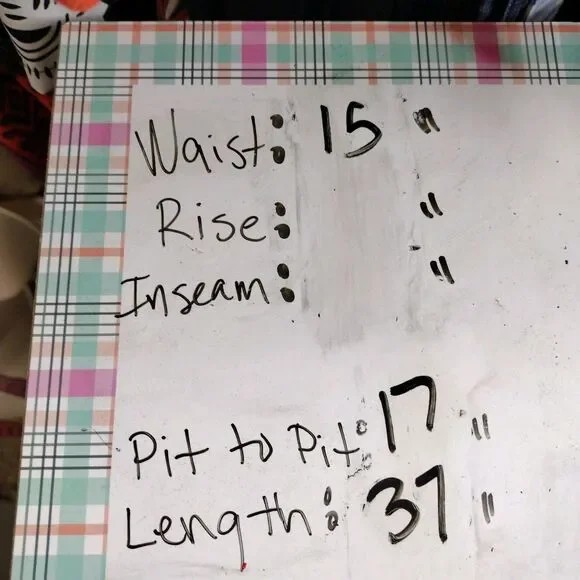 Waist: 15 "
Rise: "
Inseam: "
Pit to Pit: 17 "
Length: 37 "